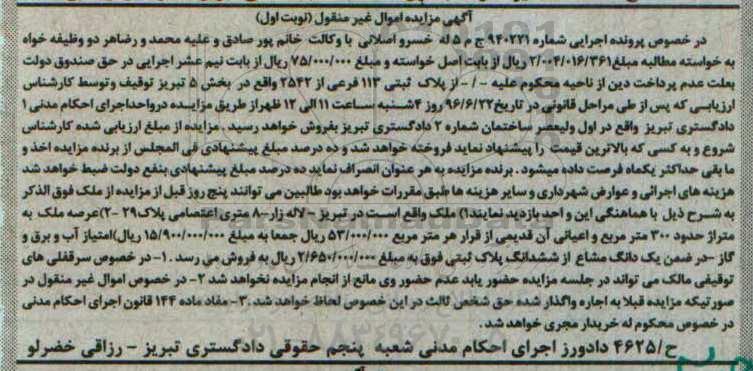 آگهی مزایده اموال غیر منقول (نوبت اول)
در خصوص پرونده اجرایی شماره ۹۴۰۲۲۱ ج م ۵ له خسرو اصلانی با وکالت خانم پور صادق و علیه محمد و رضاهر دو وظیفه خواه
به خواسته مطالبه مبلغ ۲/۰۰۴/۰۱۶/۳۶۱ ریال از بابت اصل خواسته و مبلغ ۷۵/۰۰۰/۰۰۰ ریال از بابت نیم عشر اجرایی در حق صندوق دولت
بعلت عدم پرداخت دین از ناحیه محکوم علیه -/- از پلاک ثبتی ۱۱۳ فرعی از ۲۵۴۲ واقع در بخش ۵ تبریز توقیف وتوسط کارشناس
ارزیابی که پس از طی مراحل قانونی در تاریخ ۹۶/۶/۲۲ روز ۴شنبه ساعت ۱۱ الی ۱۲ ظهر از طریق مزایده در واحد اجرای احکام مدنی ۱
دادگستری تبریز واقع در اول ولیعصر ساختمان شماره ۲ دادگستری تبریز بفروش خواهد رسید . مزایده از مبلغ ارزیابی شده کارشناس
شروع و به کسی که بالاترین قیمت را پیشنهاد نماید فروخته خواهد شد و ده درصد مبلغ پیشنهادی فی المجلس از برنده مزایده اخذ و
ما بقی حداکثر یکماه فرصت داده میشود . برنده مزایده به هر عنوان انصراف نماید ده درصد مبلغ پیشنهادی بنفع دولت ضبط خواهد شد
هزینه های اجرائی و عوارض شهرداری و سایر هزینه ها طبق مقررات خواهد بود طالبین می توانند پنج روز قبل از مزایده از ملک فوق الذکر
به شرح ذیل با هماهنگی این واحد بازدید نمایند:۱) ملک واقع است در تبریز - لاله زار-۸ متری اعتصامی پلاک ۲۹ -۲)عرصه ملک به
متراژ حدود ۳۰۰ متر مربع و اعیانی آن قدیمی از قرار هر متر مربع ۵۳/۰۰۰/۰۰۰ ریال جمعا به مبلغ ۱۵/۹۰۰/۰۰۰/۰۰۰ ریال)امتیاز آب و برق و
گاز -در ضمن یک دانگ مشاع از ششدانگ پلاک ثبتی فوق به مبلغ ۲/۶۵۰/۰۰۰/۰۰۰ ریال به فروش می رسد .۱- در خصوص سرقفلی های
توقیفی مالک می تواند در جلسه مزایده حضور یابد عدم حضور وی مانع از انجام مزایده نخواهد شد ۲- در خصوص اموال غیر منقول در
صورتیکه مزایده قبلا به اجاره واگذار شده حق شخص ثالث در این خصوص لحاظ خواهد شد .۳- مفاد ماده ۱۴۴ قانون اجرای احکام مدنی
در خصوص محکوم له خریدار مجری خواهد شد .
ح/۴۶۲۵ دادورز اجرای احکام مدنی شعبه پنجم حقوقی دادگستری تبریز - رزاقی خضرلو